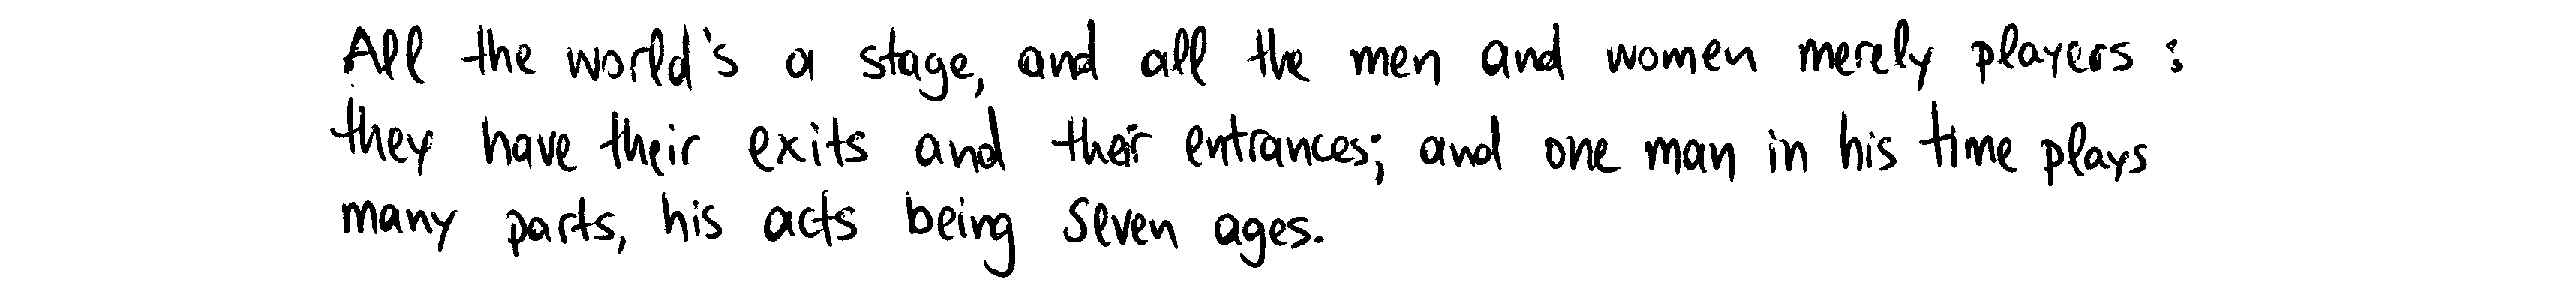 All the world's a stage, and all the men and women merely players :
they have their exits and their entrances; and one man in his time plays
many parts, his acts being seven ages.